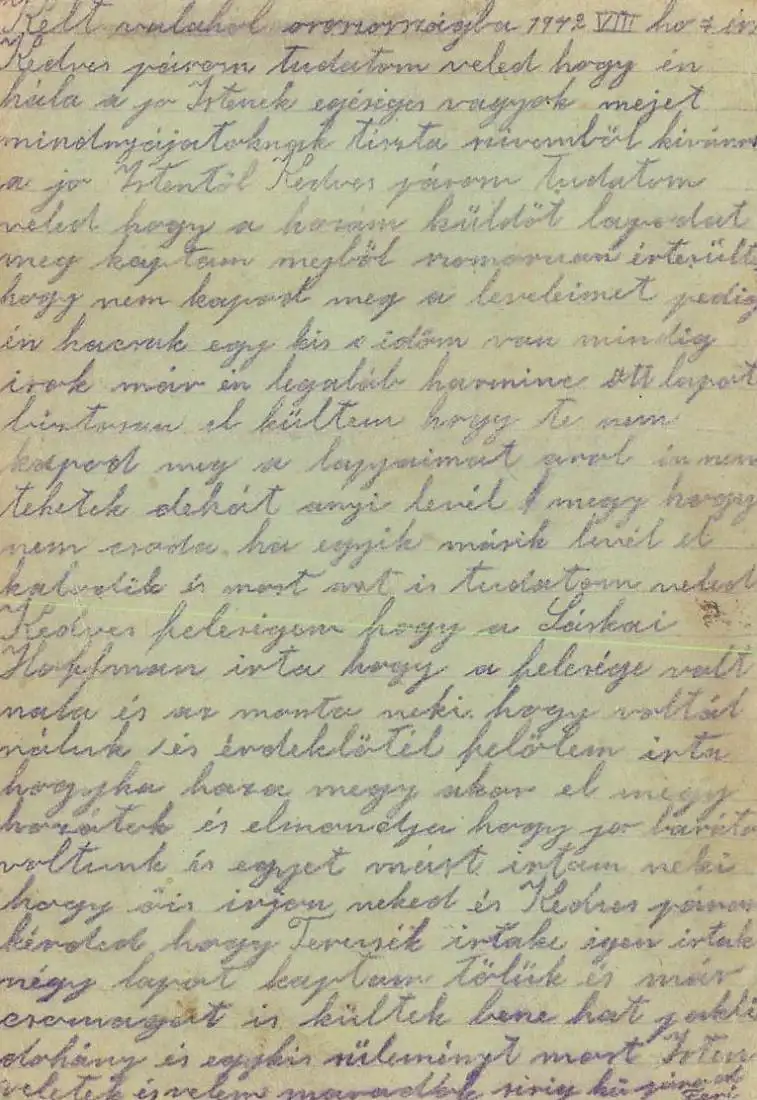 Kelt valahol oroszországba 1942 VIII ho 7 én
Kedves párom tudatom veled hogy én
hála a jo Istenek egéséges vagyok mejet
mindnyájatoknak tiszta szivemből kivánok
a jo Istentől Kedves párom tudatom
veled hogy a hozám küldöt lapodat
meg kaptam mejből szomoruan értesült
hogy nem kapod meg a leveleimet pedig
én hacsak egy kis időm van mindig
irok már én legaláb harminc ött lapot
biztosan el kültem hogy te nem
kapod meg a lapjaimat arol én nem
tehetek dehát anyi levél megy hogy
nem csoda ha egyik másik levél el
kalodik és most azt is tudatom veled
Kedves feleségem hogy a Sáskai
Hoffman irta hogy a felesége volt
nala és az monta neki hogy voltál
náluk és érdeklőtél felőlem irta
hogyha haza megy akor el megy
hozátok és elmondja hogy jo baráto
voltunk és egyjet mást irtam neki
hogy őis irjon neked és Kedves párom
kérded hogy Terusék irtake igen irtak
négy lapot kaptam tőlük és már
csomagot is kültek bene hat pakli
dohány és egykis süleményt most Isten
veletek és velem maradok sirig hü párod
Feri